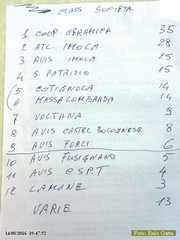 CLASS SOCIETA
1 COOP CERAMICA 35
2 ATL. IMOLA 28
3 AVIS IMOLA 25
4 S. PATRIZIO 15
5 COTIGNOLA 14
6 MASSALOMBARDA 14
7 VOLTANA 9
8 AVIS CASTEL BOLOGNESE 8
9 AVIS FORLI 6
10 AVIS FUSIGNANO 5
11 AVIS 4
12 LAMONE 3
VARIE 13
14/08/2016 19:47:52
Foto: Enio Gatta